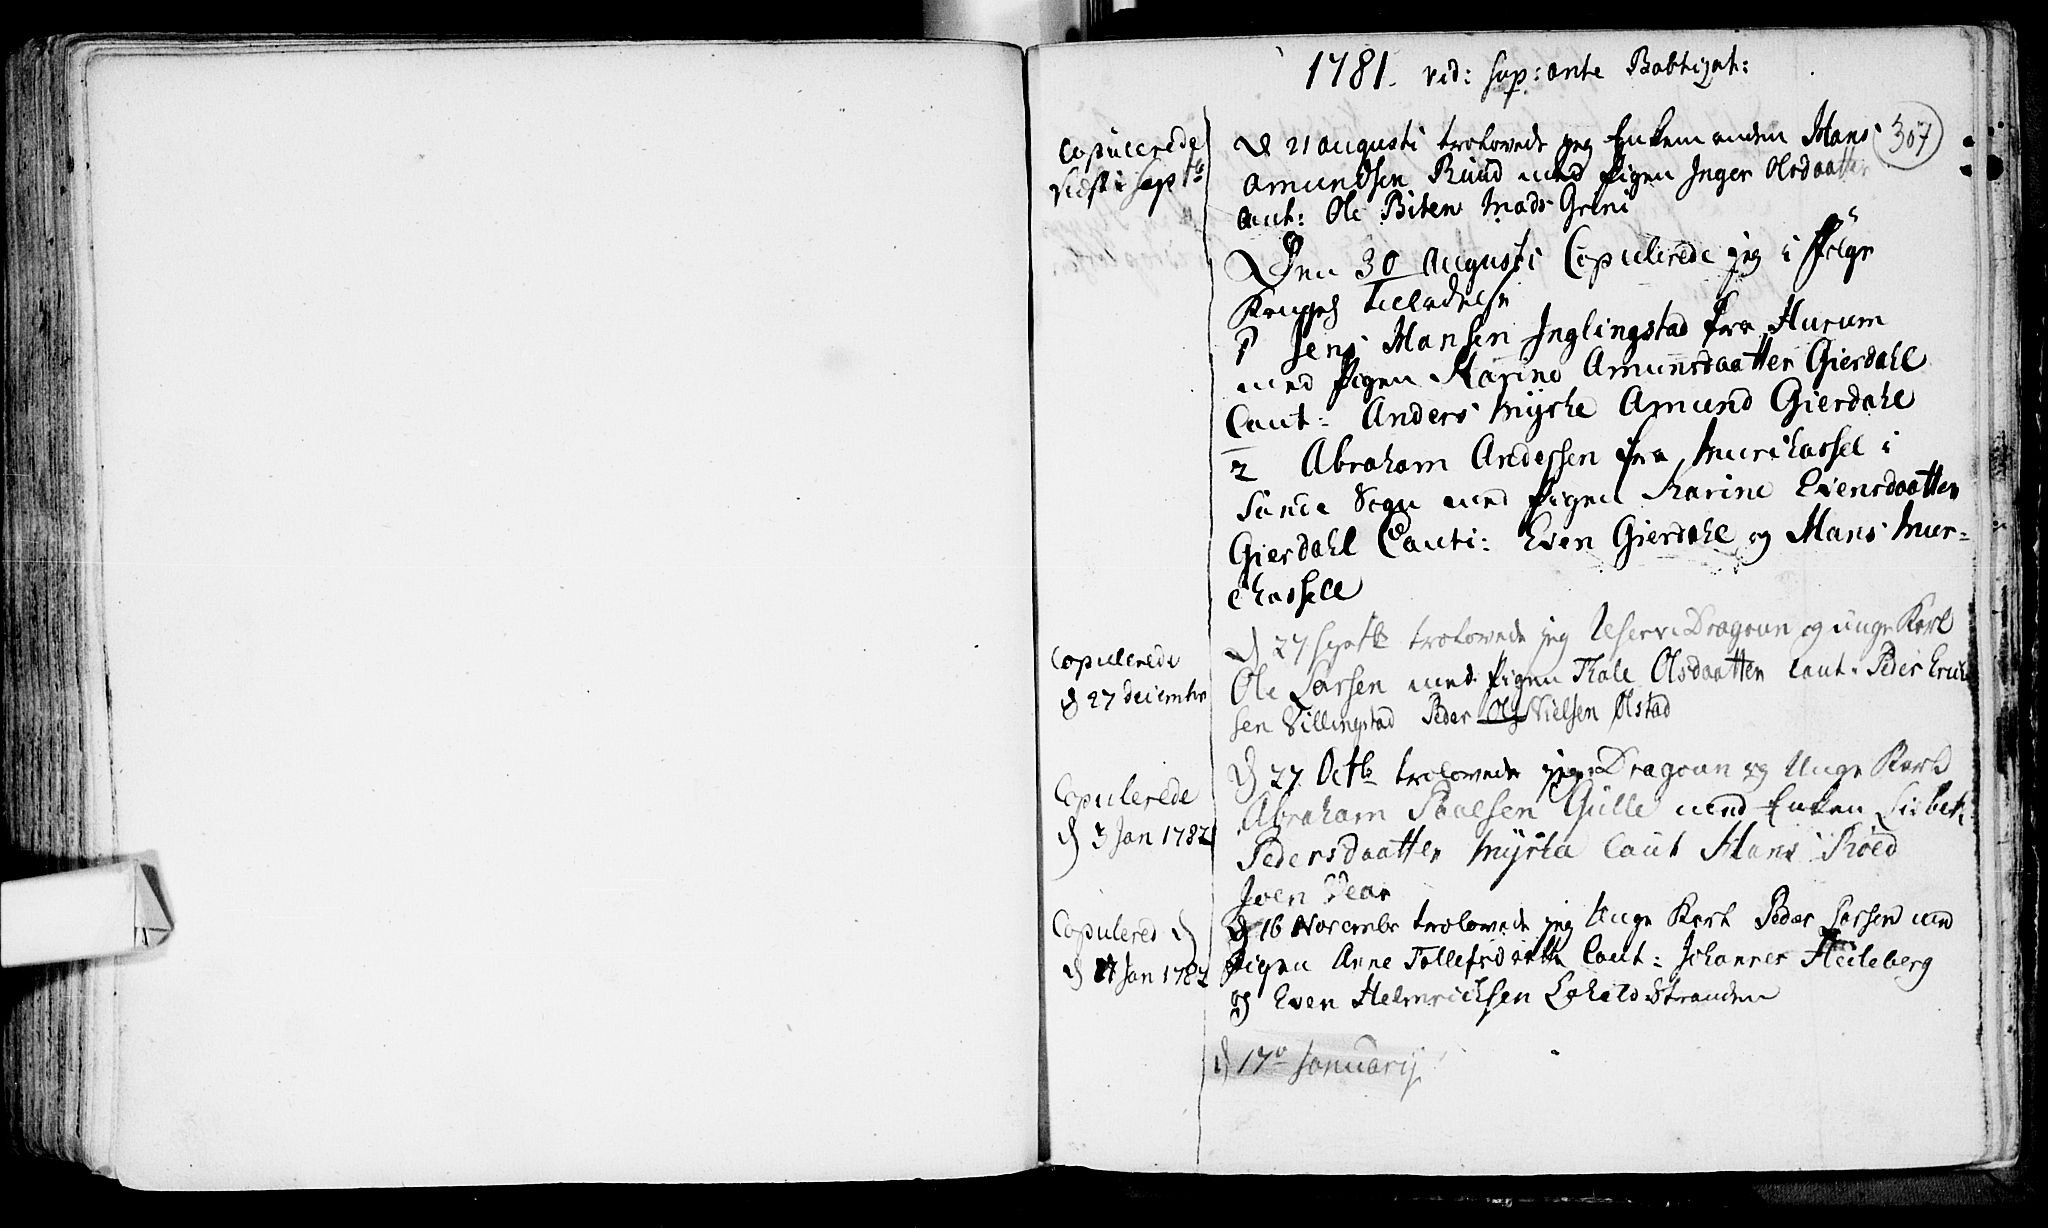 1781. vid: sup: ante Babtizat:
307
Copulerede
sidst i Septb
D 21 Augusti trolovede jeg Enkemanden Hans
Amundsen Ruud med Pigen Inger Olsdaatter
Caut: Ole Biten Mads Grini
Den 30 Augusti Copulerede jeg i Følge
Kongel Tilladelse
1 Jens Hansen Inglingstad fra Hurum
med Pigen Karine Amunsdaatter Gierdahl
Caut: Anders Myhre Amund Gierdahl
2 Abraham Andersen fra Murikassel i
Sande Sogn med Pigen Karine Evensdaatter
Gierdahl Cauti: Even Gierdahl og Hans Mur-
chassell
Copulerede
d 27 Decembr
D 27 Septb trolovede jeg Reserve Dragoun og unge Karl
Ole Larsen med Pigen Thale Olsdaatter Caut: Peder Erich
sen Villingstad Peder Ols Nielsen Ølstad
Copulerede
d 3 Jan 1782
D 27 Octb trolovede jeg Dragoun og Unge Karl
Abraham Paalsen Gulle med Enken Lisbeth
Pedersdaatter Myrta Caut Hans Røed
Joen Vear
Copulered d
d Jan 1782
D 16 Novembr trolovede jeg Unge Karl Peder Larsen med
Pigen Anne Tollefsdaatt Caut: Johannes Heileberg
og Even Helmrichsen Stranden
d 17 Januarij